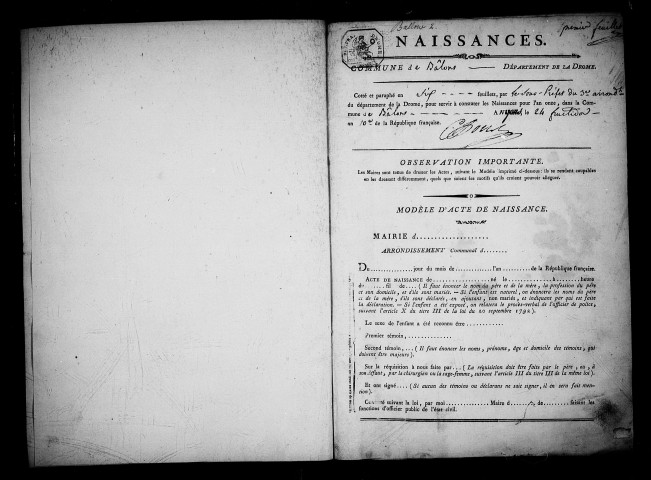 Ballons 2.
premier feuillet
NAISSANCES.
COMMUNE de Bâlons DÉPARTEMENT DE LA DROME.
Cotté et paraphé en six feuillets, par le sous-Préfet du 3e arrond.t
du département de la Drome, pour servir à constater les Naissances pour l'an onze, dans la Com-
mune de Bâlons A Nyons, le 24 fructidor
an 10e de la République française.
OBSERVATION IMPORTANTE.
Les Maires sont tenus de dresser les Actes, suivant le Modèle imprimé ci-dessous: ils se rendent coupables
en les dressant différemment, quels que soient les motifs qu'ils croient pouvoir alléguer.
MODÈLE D'ACTE DE NAISSANCE.
MAIRIE d
ARRONDISSEMENT Communal d
Du jour du mois de l'an de la République française.
ACTE DE NAISSANCE de né le à heure
de fil de (Il faut énoncer le nom du père et de la mère, la profession du père
et son domicile, et s'ils sont mariés. — Si l'enfant est naturel, on énoncera les noms de père
et de la mère, s'ils sont déclarés, en ajoutant, non mariés, et indiquant par qui est faite
la déclaration. — Si l'enfant a été exposé, on relatera le procès-verbal de l'officier de police,
suivant l'article X du titre III de la loi du 20 septembre 1792).
Le sexe de l'enfant a été reconnu être
Premier témoin,
Second témoin, (Il faut énoncer les noms, prénoms, âge et domicile des témoins, qui
doivent être majeurs).
Sur la réquisition à nous faite par (La réquisition doit être faite par le père, ou, à
son défaut, par le chirurgien ou la sage-femme, suivant l'article III du titre III de la même loi).
Et ont signé (Si aucun des témoins ou déclarans ne sait signer, il en sera fait men-
tion).
Constaté suivant la loi, par moi Maire d de faisant les
fonctions d'officier public de l'état civil.